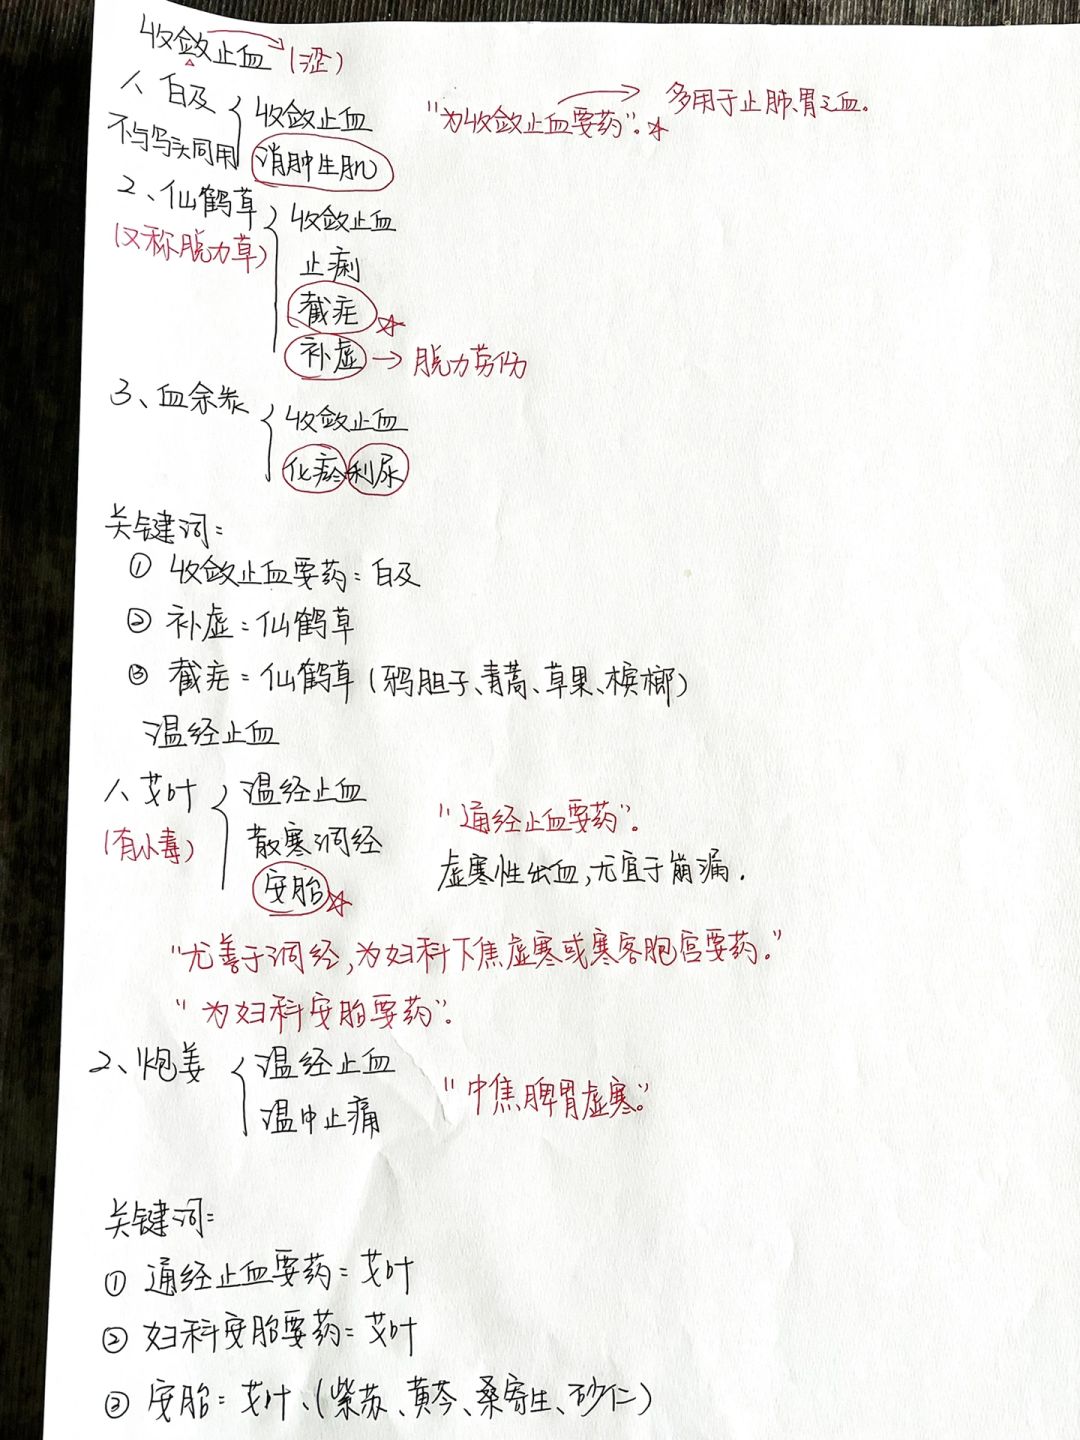 收敛止血(涩)
1、白及 收敛止血 "为收敛止血要药"。 多用于止肺、胃之血。
不与乌头同用 消肿生肌
2、仙鹤草 收敛止血
(又称脱力草) 止痢
截疟
补虚→脱力劳伤
3、血余炭 收敛止血
化瘀利尿
关键词：
① 收敛止血要药=白及
② 补虚=仙鹤草
③ 截疟=仙鹤草(鸦胆子、青蒿、草果、槟榔)
温经止血
1、艾叶 温经止血 "通经止血要药"。
(有小毒) 散寒调经 虚寒性出血,尤宜于崩漏.
安胎
"尤善于调经,为妇科下焦虚寒或寒客胞宫要药。"
"为妇科安胎要药"。
2、炮姜 温经止血 "中焦脾胃虚寒。"
温中止痛
关键词：
① 通经止血要药=艾叶
② 妇科安胎要药=艾叶
③ 安胎=艾叶、(紫苏、黄芩、桑寄生、砂仁)